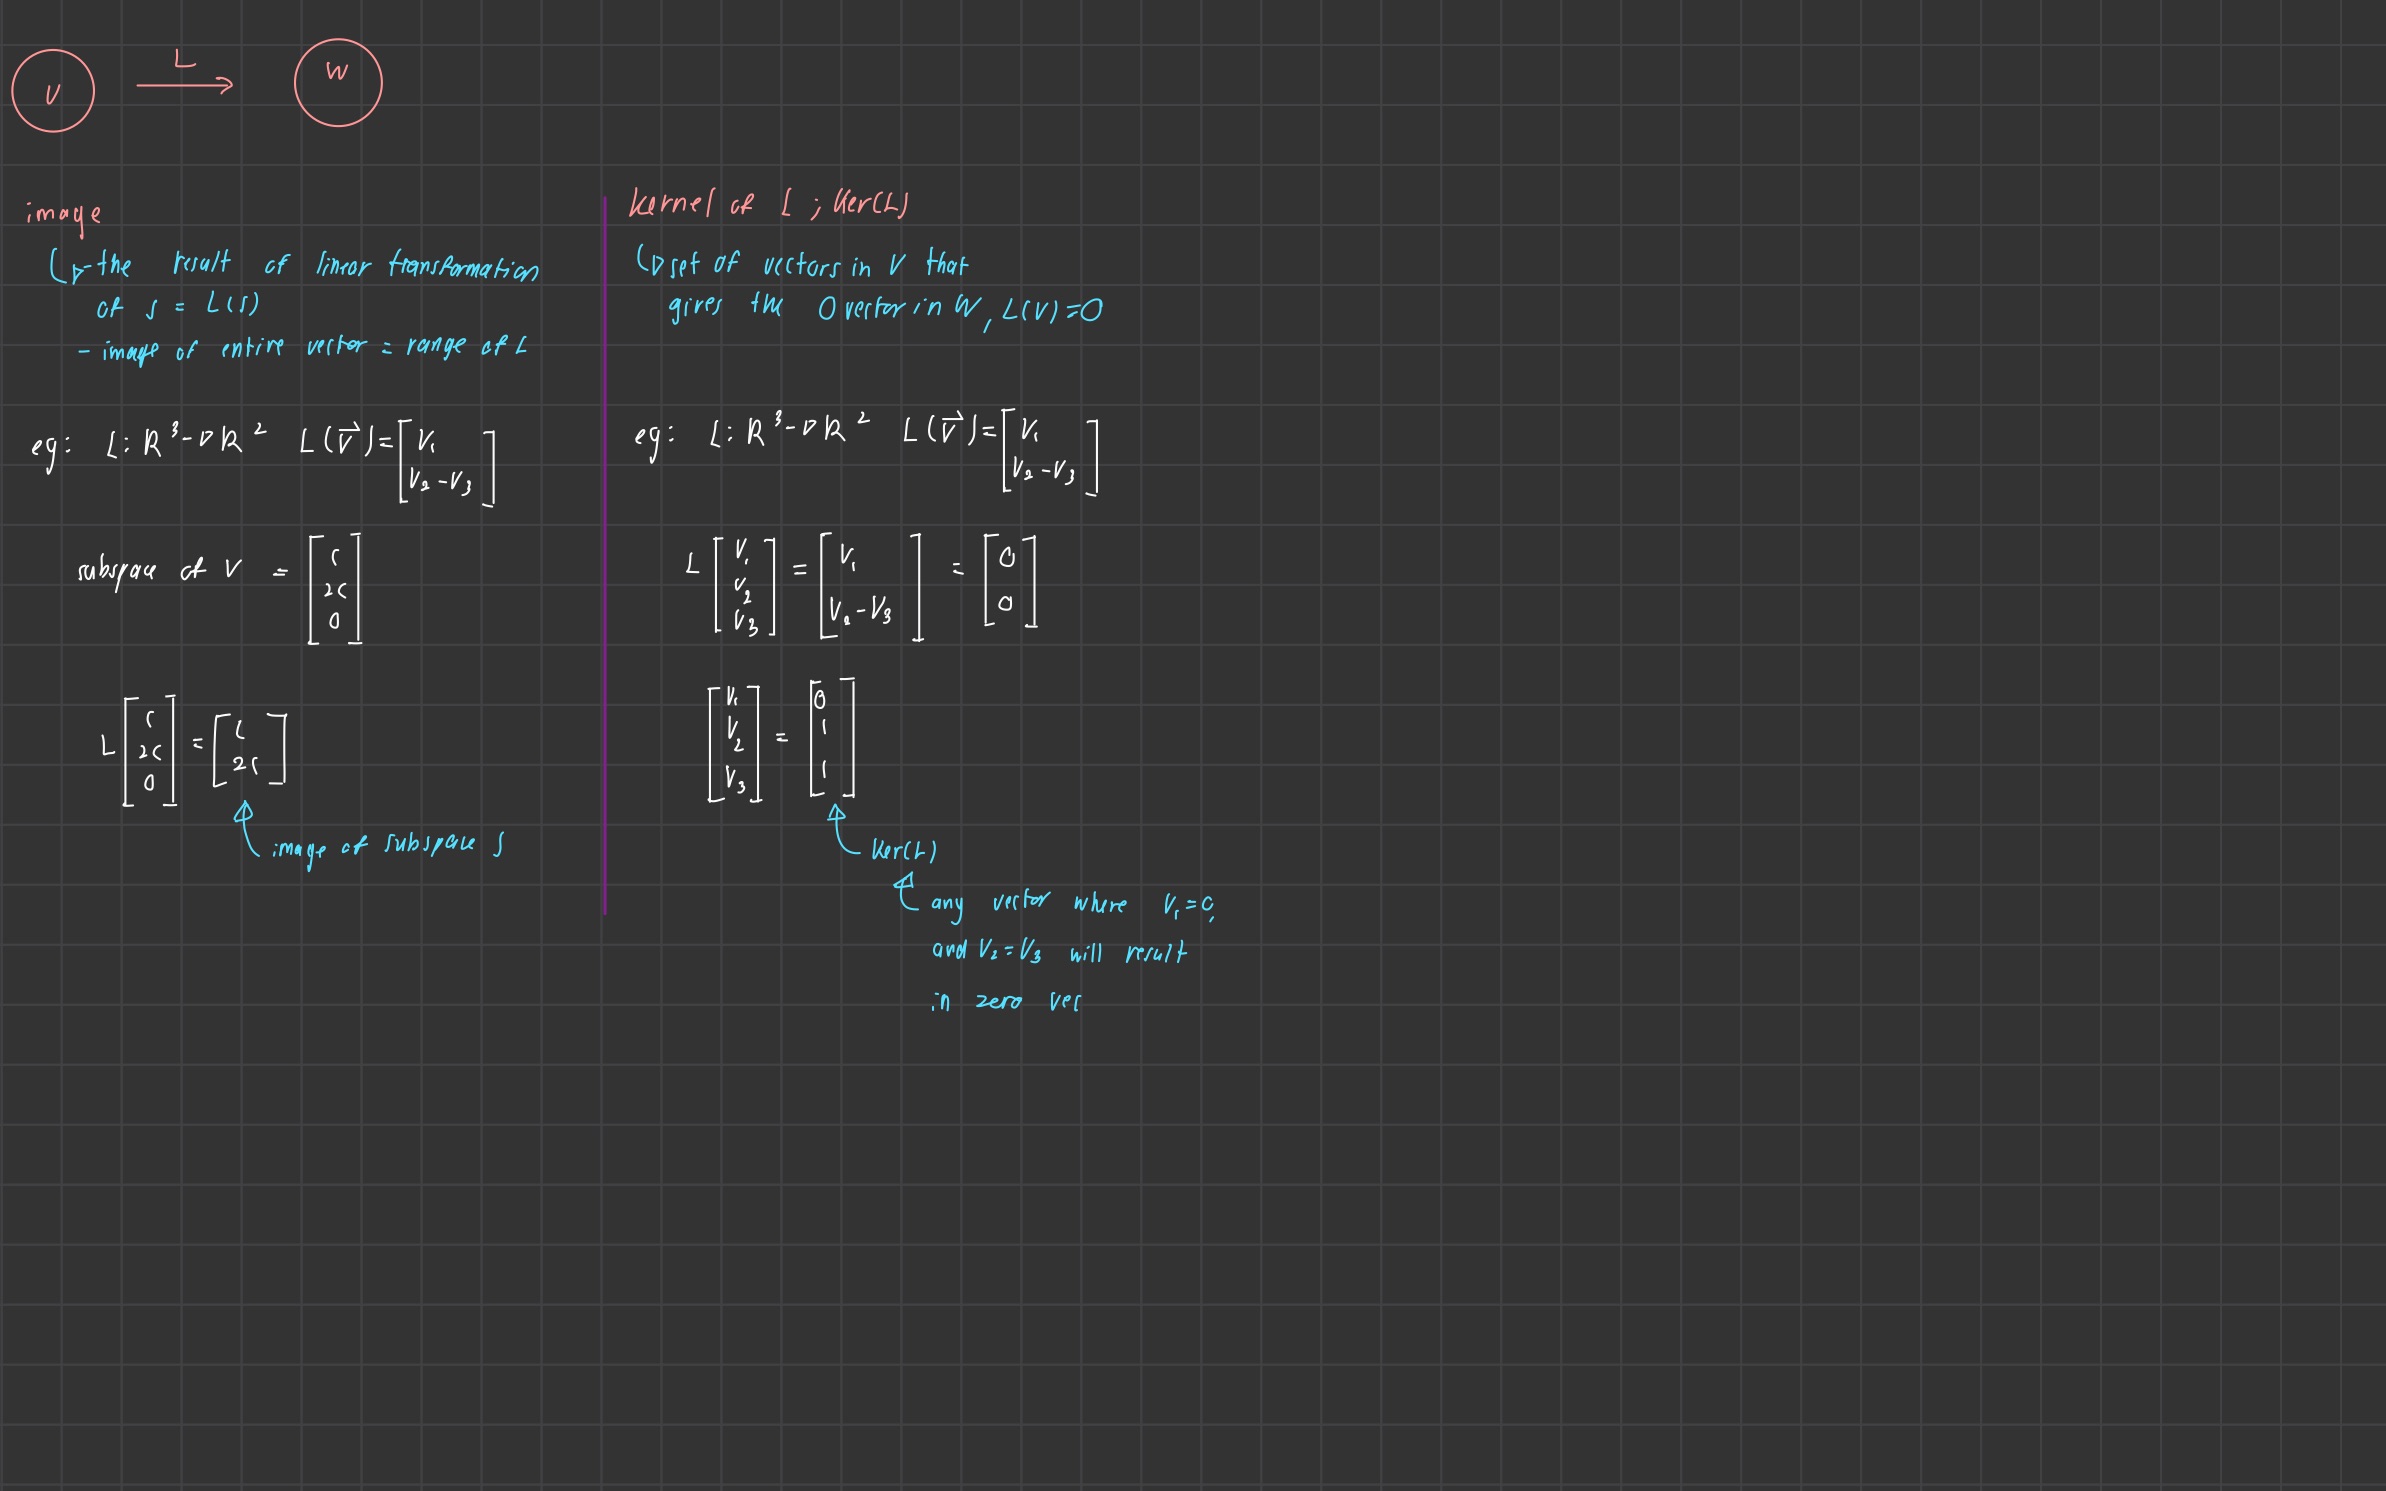 V L W
image
- the result of linear transformation
of S = L(S)
- image of entire vector = range of L
eg: L: R³ → R² L(v⃗) = [v₁
v₂ - v₃]
subspace of V = [c
2c
0]
L [c
2c
0] = [c
2c]
image of subspace S
Kernel of L ; Ker(L)
set of vectors in V that
gives the 0 vector in W, L(V) = 0
eg: L: R³ → R² L(v⃗) = [v₁
v₂ - v₃]
L [v₁
v₂
v₃] = [v₁
v₂ - v₃] = [0
0]
[v₁
v₂
v₃] = [0
1
1]
Ker(L)
any vector where V₁ = 0,
and V₂ = V₃ will result
in zero vec